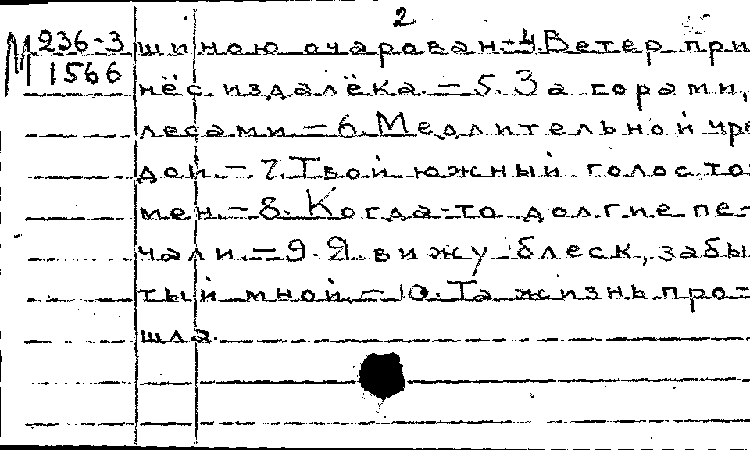 2
М 236-3
1566
шиною очарован.-4.Ветер при
нёс издалёка.-5.За горами,
лесами.-6.Медлительной чре
дой.-7.Твой южный голос то-
мен.-8.Когда-то долгие пе-
чали.-9.Я вижу блеск, забы
тый мной.-10.Та жизнь про-
шла.